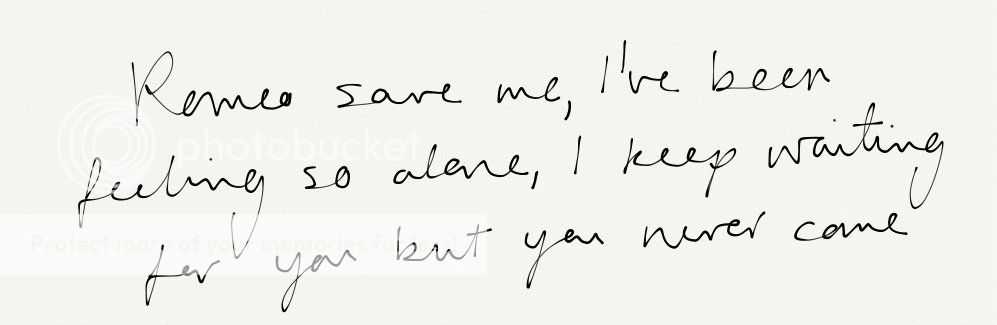 Romeo save me, I've been
feeling so alone, I keep waiting
for you but you never come
photobucket
Protect more of your memories for less!